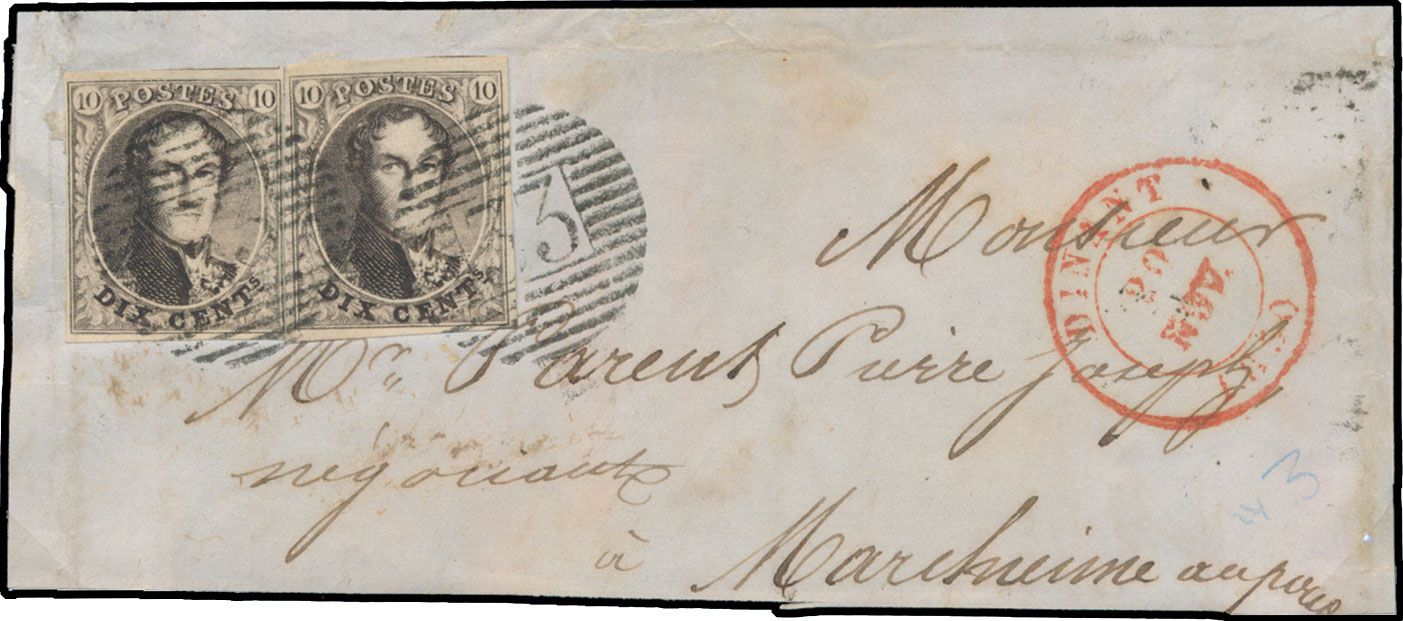 10 POSTES 10
DIX CENTS
10 POSTES 10
DIX CENTS
3
DINANT
Monsieur
Mr Parent Pierre Joseph
négociant
à Marchienne au pont
43